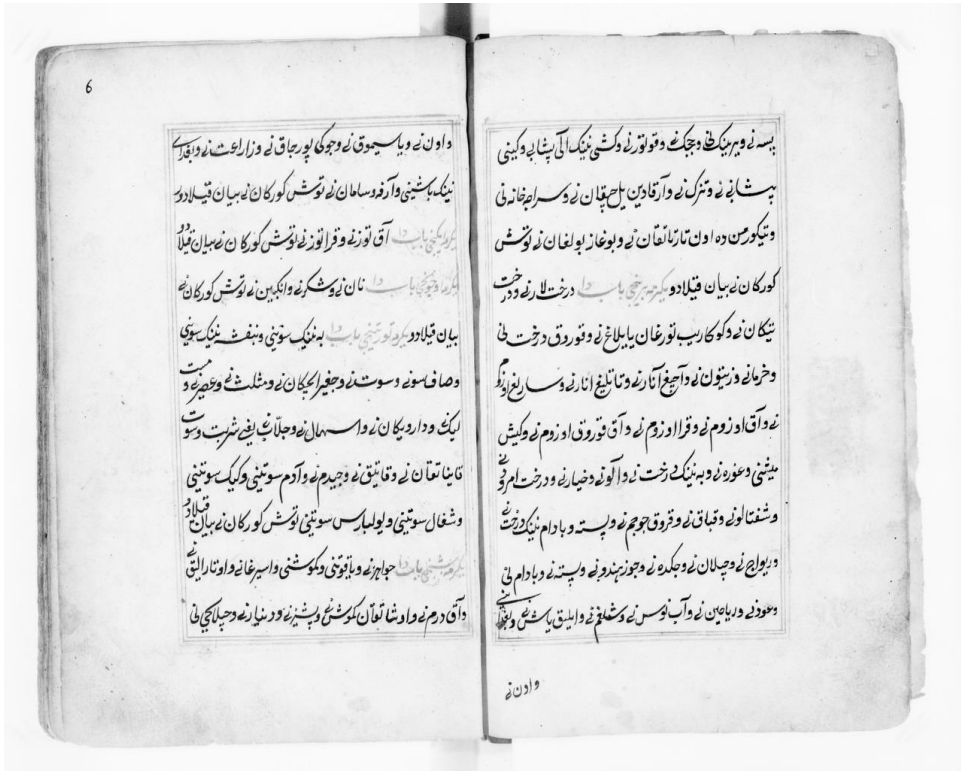 پسه نی و یرمینک نی و جبکنی و قوتوزنی و کشی نینک الی پشانی و کینی
پشانی نی و تنرک نی و آرقادین یل حیقان نی و سرابخانه نی
و تیکورمن ده اون تارتاتقان نی و بوغاز بولغان نی توش
کورکان نی بیان قیلادو یکرمه برنجی باب دا درخت لارنی و درخت
تیکان نی و کوکاریب تورغان یا یلاغ نی و قوروق درخت نی
و خرمانی و زیتون نی و آجیغ آنارنی و تاتلیغ انارنی و ساریغ اوزوم
نی و آق اوزوم نی و قرا اوزوم نی و آق قوروق اوزوم نی و کیش
میشنی و غوره نی و به نینک درخت نی و آلونی و خیارنی و درخت امرودنی
و شفتالونی و قباق نی و قروق جوجم نی و پسته و بادام نینک درخت نی
و ریواج نی و چیلان نی و جکده نی و جوز هندونی و پسته نی و بادام نی
و عودنی و ریاحین نی و آب نوس نی و شلغم نی و ایلیق یاش نی
و اون نی
6
و اون نی و یاسیموق نی و جوکی پورجاق نی و زراعت نی و بغدای
نینک باشینی و آرفه و سامان نی توش کورکان نی بیان قیلادو
یکرمه ایکنجی باب دا آق توزنی و قرا توزنی توش کورکان نی بیان قیلادو
یکرمه اوچونجی باب دا نان نی و شکرنی و انکبین نی توش کورکان نی
بیان قیلادو یکرمه تورتینجی باب دا به نینک سوینی و بنفشه نینک سوینی
و صاف سونی و سوت نی و جغیر ایجکان نی و مثلث نی و عصیرنی و مست
لیک نی و دارو یکان نی و اسهال نی و جلاب یعنی شربت و سوت
قایناتقان نی و قاتیق نی و جیدم نی و آدم سوتینی و کیک سوتینی
و شغال سوتینی و یولبارس سوتینی توش کورکان نی بیان قیلادو
یکرمه بشنجی باب دا جواهرنی و یاقوتنی و کوموشنی و اسیرغانی و اوتارالیق نی
و آق درم نی و اوشاتقان کموش نی و پشیزنی و دینارنی و جیلاکجی نی